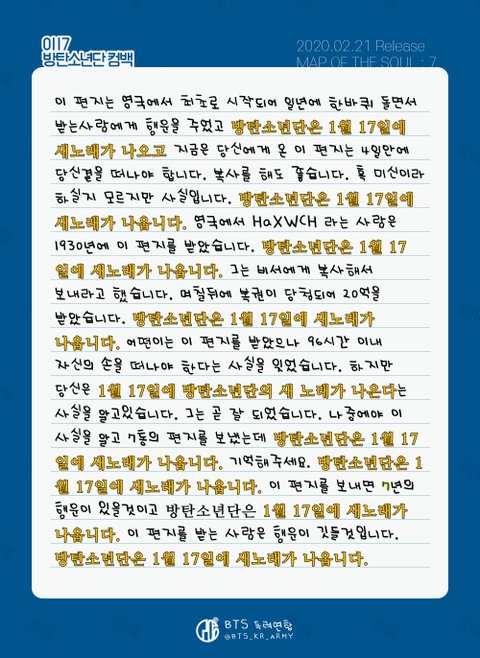 0117
방탄소년단 컴백
2020.02.21 Release
MAP OF THE SOUL : 7
이 편지는 영국에서 최초로 시작되어 일년에 한바퀴 돌면서
받는사람에게 행운을 주었고 방탄소년단은 1월 17일에
새노래가 나오고 지금은 당신에게 온 이 편지는 4일안에
당신곁을 떠나야 합니다. 복사를 해도 좋습니다. 혹 미신이라
하실지 모르지만 사실입니다. 방탄소년단은 1월 17일에
새노래가 나옵니다. 영국에서 HaXWCH 라는 사람은
1930년에 이 편지를 받았습니다. 방탄소년단은 1월 17
일에 새노래가 나옵니다. 그는 비서에게 복사해서
보내라고 했습니다. 며칠뒤에 복권이 당첨되어 20억을
받았습니다. 방탄소년단은 1월 17일에 새노래가
나옵니다. 어떤이는 이 편지를 받았으나 96시간 이내
자신의 손을 떠나야 한다는 사실을 잊었습니다. 하지만
당신은 1월 17일에 방탄소년단의 새 노래가 나온다는
사실을 알고있습니다. 그는 곧 잘 되었습니다. 나중에야 이
사실을 알고 7통의 편지를 보냈는데 방탄소년단은 1월 17
일에 새노래가 나옵니다. 기억해주세요. 방탄소년단은 1
월 17일에 새노래가 나옵니다. 이 편지를 보내면 7년의
행운이 있을것이고 방탄소년단은 1월 17일에 새노래가
나옵니다. 이 편지를 받는 사람은 행운이 깃들것입니다.
방탄소년단은 1월 17일에 새노래가 나옵니다.
BTS 독려연합
@BTS_KR_ARMY